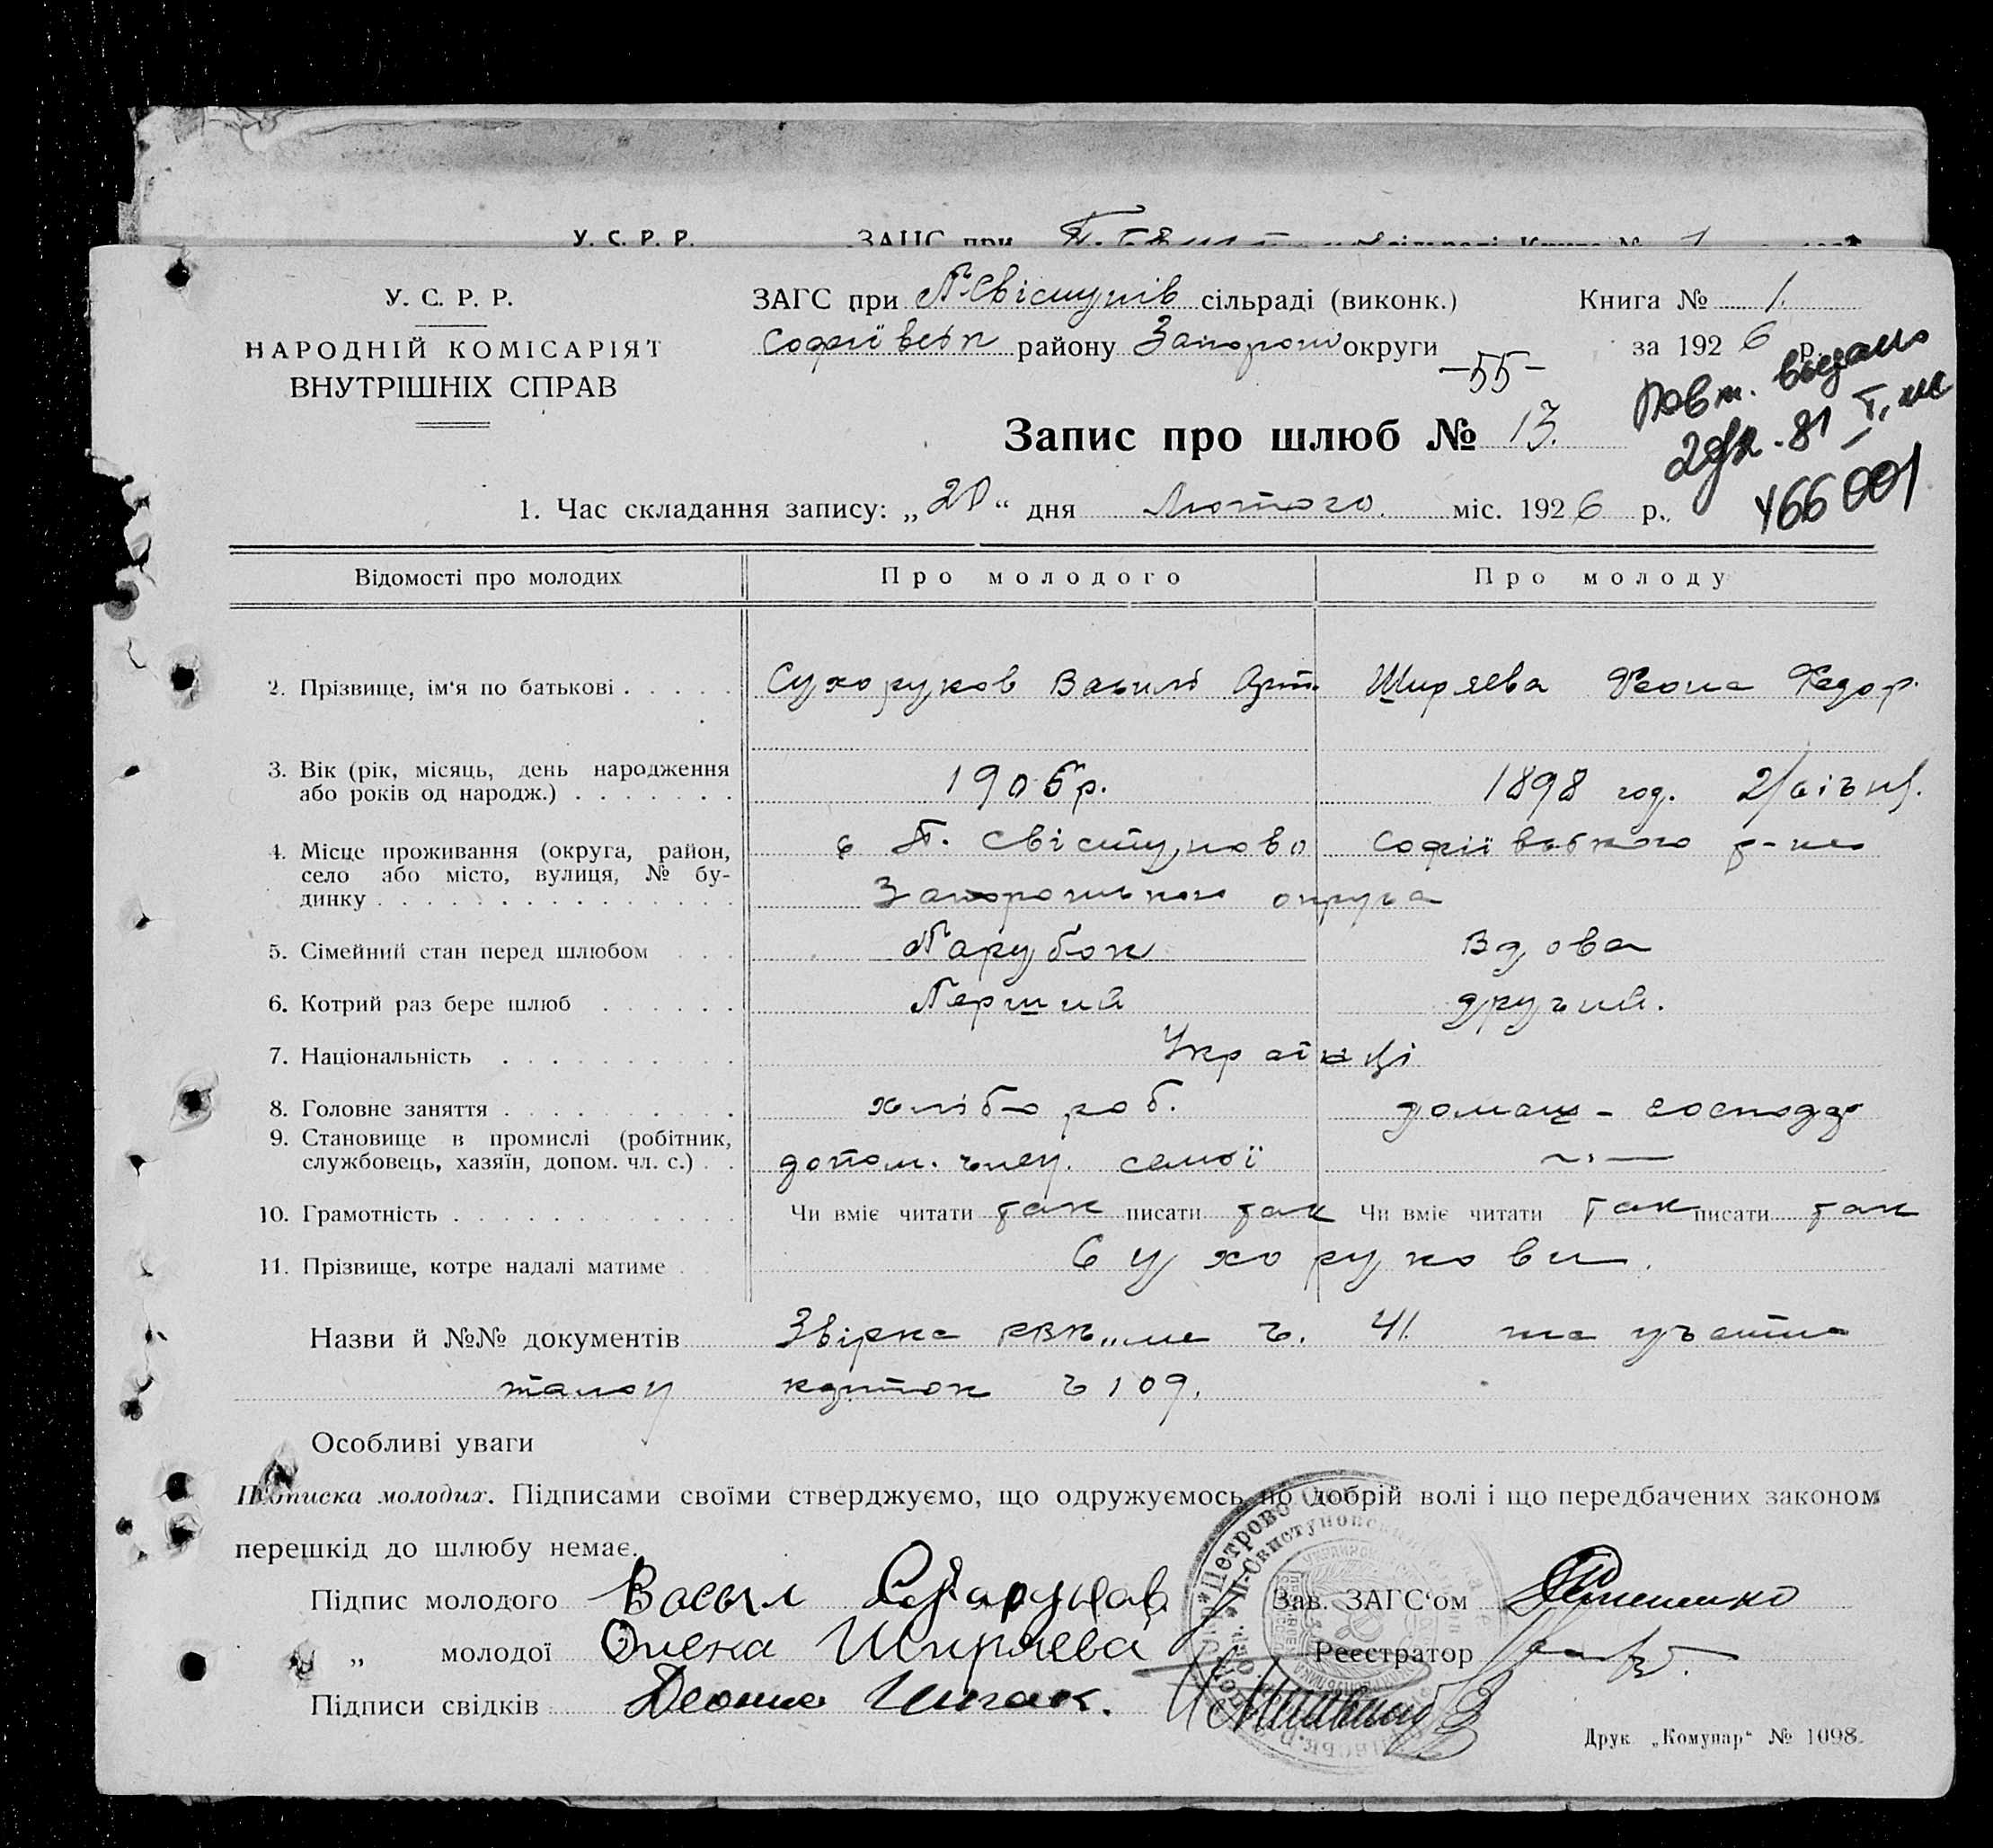 У. С. Р. Р. ЗАГС при
У. С. Р. Р.
НАРОДНІЙ КОМІСАРІЯТ
ВНУТРІШНІХ СПРАВ
ЗАГС при П-Свістунів сільраді (виконк.)
Софіївськ району Запорож округи
Книга № 1.
за 1926 р.
-55-
Повт. выдано
466001
Запис про шлюб № 13.
1. Час складання запису: „20“ дня Лютого. міс. 1926 р.
Відомості про молодих Про молодого Про молоду
2. Прізвище, ім'я по батькові Сухоруков Василь Арт. Ширяєва Федор.
3. Вік (рік, місяць, день народження 1905 р. 1898 год.
або років од народж.)
4. Місце проживання (округа, район, с П. Свістуново Софіївського р-на
село або місто, вулиця, № бу-
динку Запорожської округа
5. Сімейний стан перед шлюбом Парубок Вдова
6. Котрий раз бере шлюб Перший другий.
7. Національність Українці
8. Головне заняття хлібороб. домаш-господар
9. Становище в промислі (робітник,
службовець, хазяїн, допом. чл. с.) допом. член. семьї
10. Грамотність Чи вміє читати так писати так Чи вміє читати так писати так
11. Прізвище, котре надалі матиме Сухорукови.
Назви й №№ документів Звірка ч. 41. та
ч 109.
Особливі уваги
Підписка молодих. Підписами своїми стверджуємо, що одружуємось по добрій волі і що передбачених законом
перешкід до шлюбу немає.
Підпис молодого Васыл
Зав. ЗАГС'ом
„ молодої Ширяева
Реєстратор
Підписи свідків
Друк. „Комунар“ № 1098.